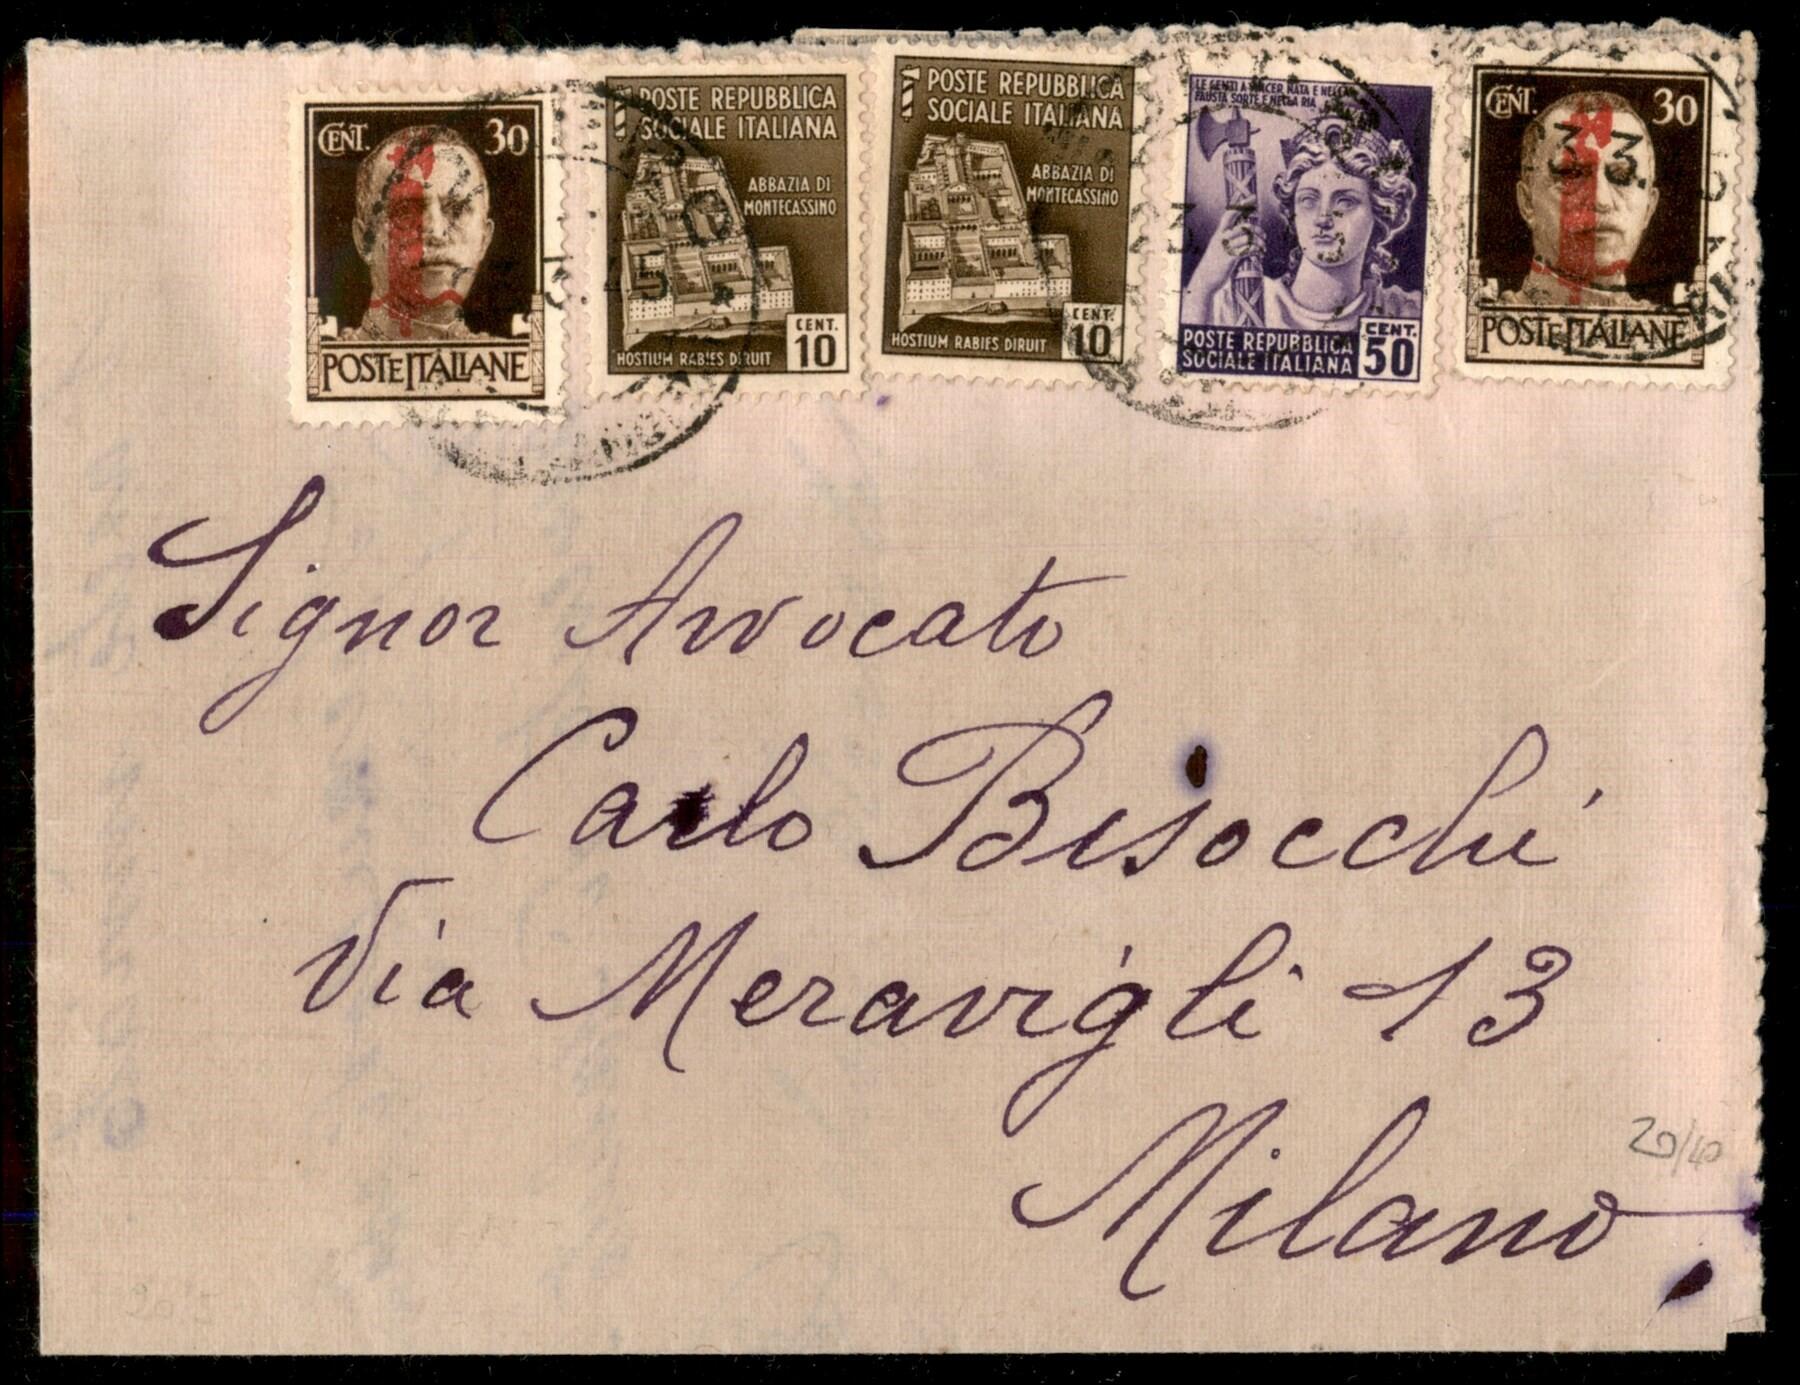 CENT. 30
POSTE ITALIANE
POSTE REPUBBLICA
SOCIALE ITALIANA
ABBAZIA DI
MONTECASSINO
CENT.
10
HOSTIUM RABIES DIRUIT
POSTE REPUBBLICA
SOCIALE ITALIANA
ABBAZIA DI
MONTECASSINO
CENT.
10
HOSTIUM RABIES DIRUIT
LE GENTI A NATA E NELLA
FAUSTA SORTE E NELLA RIA
CENT.
50
POSTE REPUBBLICA
SOCIALE ITALIANA
CENT. 30
POSTE ITALIANE
Signor Avvocato
Carlo Bisocchi
Via Meravigli 13
Milano
20/40